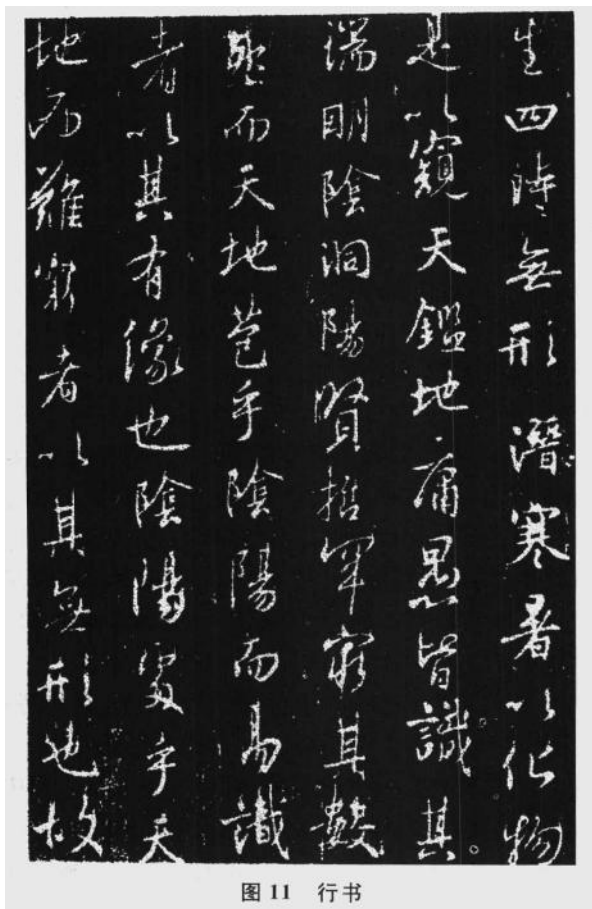 生四時無形潛寒暑以化物
是以窺天鑑地庸愚皆識其
端明陰洞陽賢哲罕窮其數
然而天地苞乎陰陽而易識
者以其有像也陰陽處乎天
地而難窮者以其無形也故
图11 行书